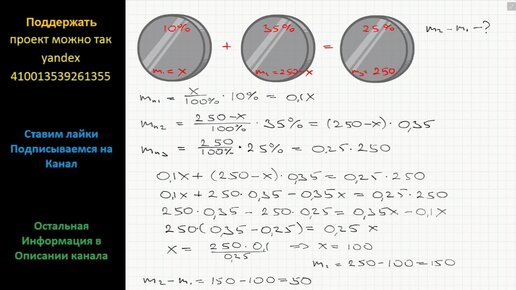 Поддержать
проект можно так
yandex
410013539261355
Ставим лайки
Подписываемся на
Канал
Остальная
Информация в
Описании канала
10% + 35% = 25% m₂ - m₁ - ?
m₁ = x m₂ = 250-x m₃ = 250
mₙ₁ = x/100% · 10% = 0,1x
mₙ₂ = 250-x/100% · 35% = (250-x) · 0,35
mₙ₃ = 250/100% · 25% = 0,25 · 250
0,1x + (250-x) · 0,35 = 0,25 · 250
0,1x + 250 · 0,35 - 0,35x = 0,25 · 250
250 · 0,35 - 250 · 0,25 = 0,35x - 0,1x
250(0,35 - 0,25) = 0,25 x
x = 250 · 0,1/0,25 ⇒ x = 100
m₂ = 250 - 100 = 150
m₂ - m₁ = 150 - 100 = 50